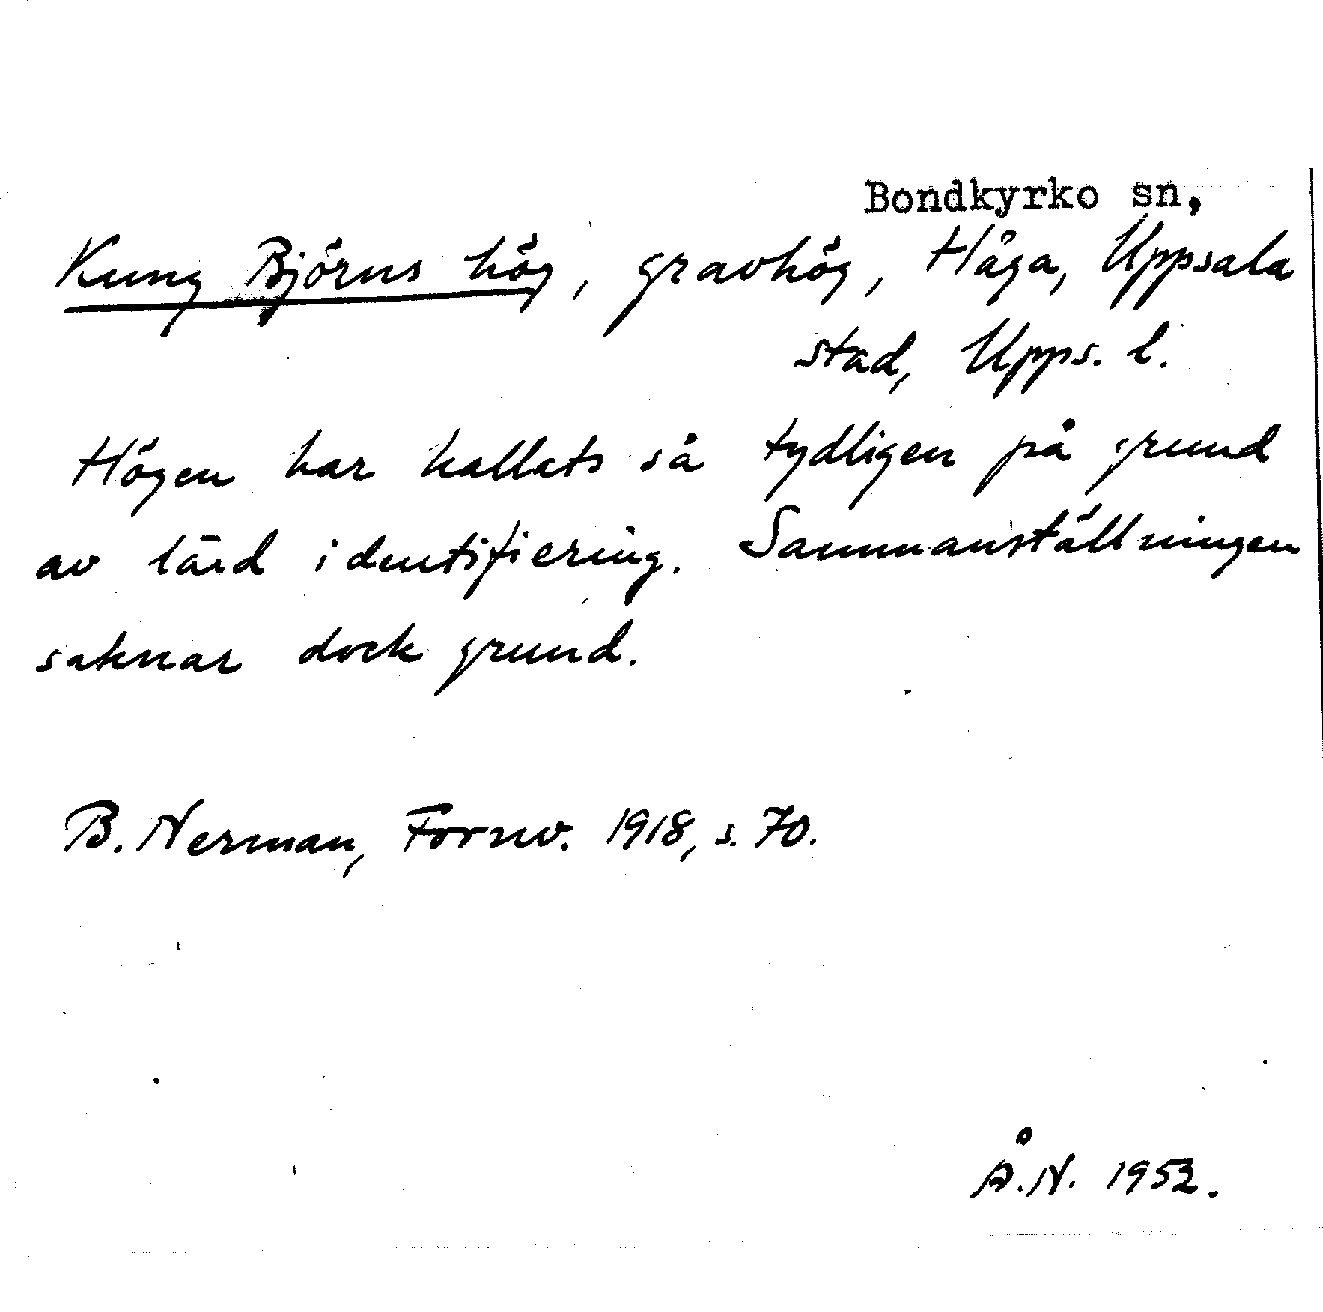 Bondkyrko sn,
Kung Björns hög, gravhög, Håga, Uppsala
stad, Upps. l.
Högen har kallats så tydligen på grund
av lärd identifiering. Sammanställningen
saknar dock grund.
B. Nerman, Fornv. 1918, s. 70.
Å.N. 1952.